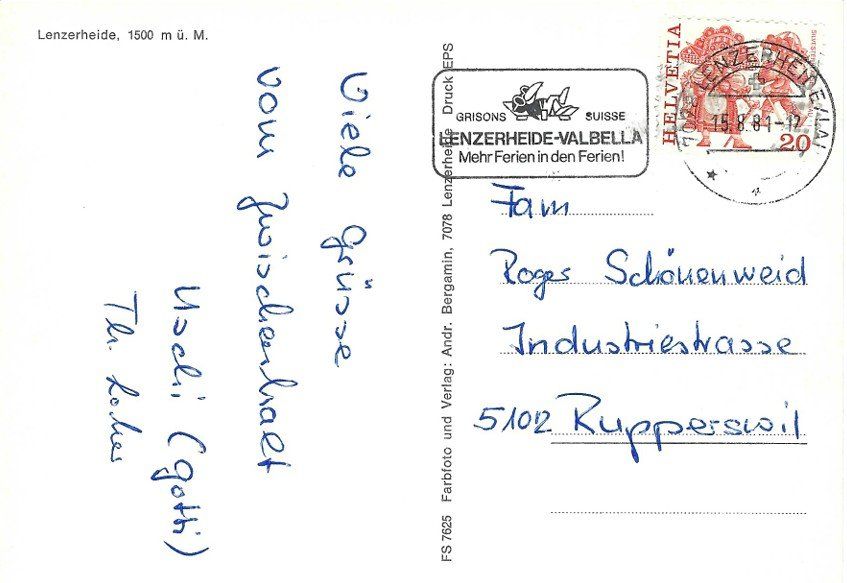 Lenzerheide, 1500 m ü. M.
Viele Grüsse
vom Zwischenhalt
Uschi (gotti)
Th. Locher
FS 7625 Farbfoto und Verlag: Andr. Bergamin, 7078 Lenzerheide Druck EPS
GRISONS SUISSE
LENZERHEIDE-VALBELLA
Mehr Ferien in den Ferien!
HELVETIA
20
LENZERHEIDE/LAI
15.8.81-12
Fam
Roger Schönenweid
Industriestrasse
5102 Rupperswil